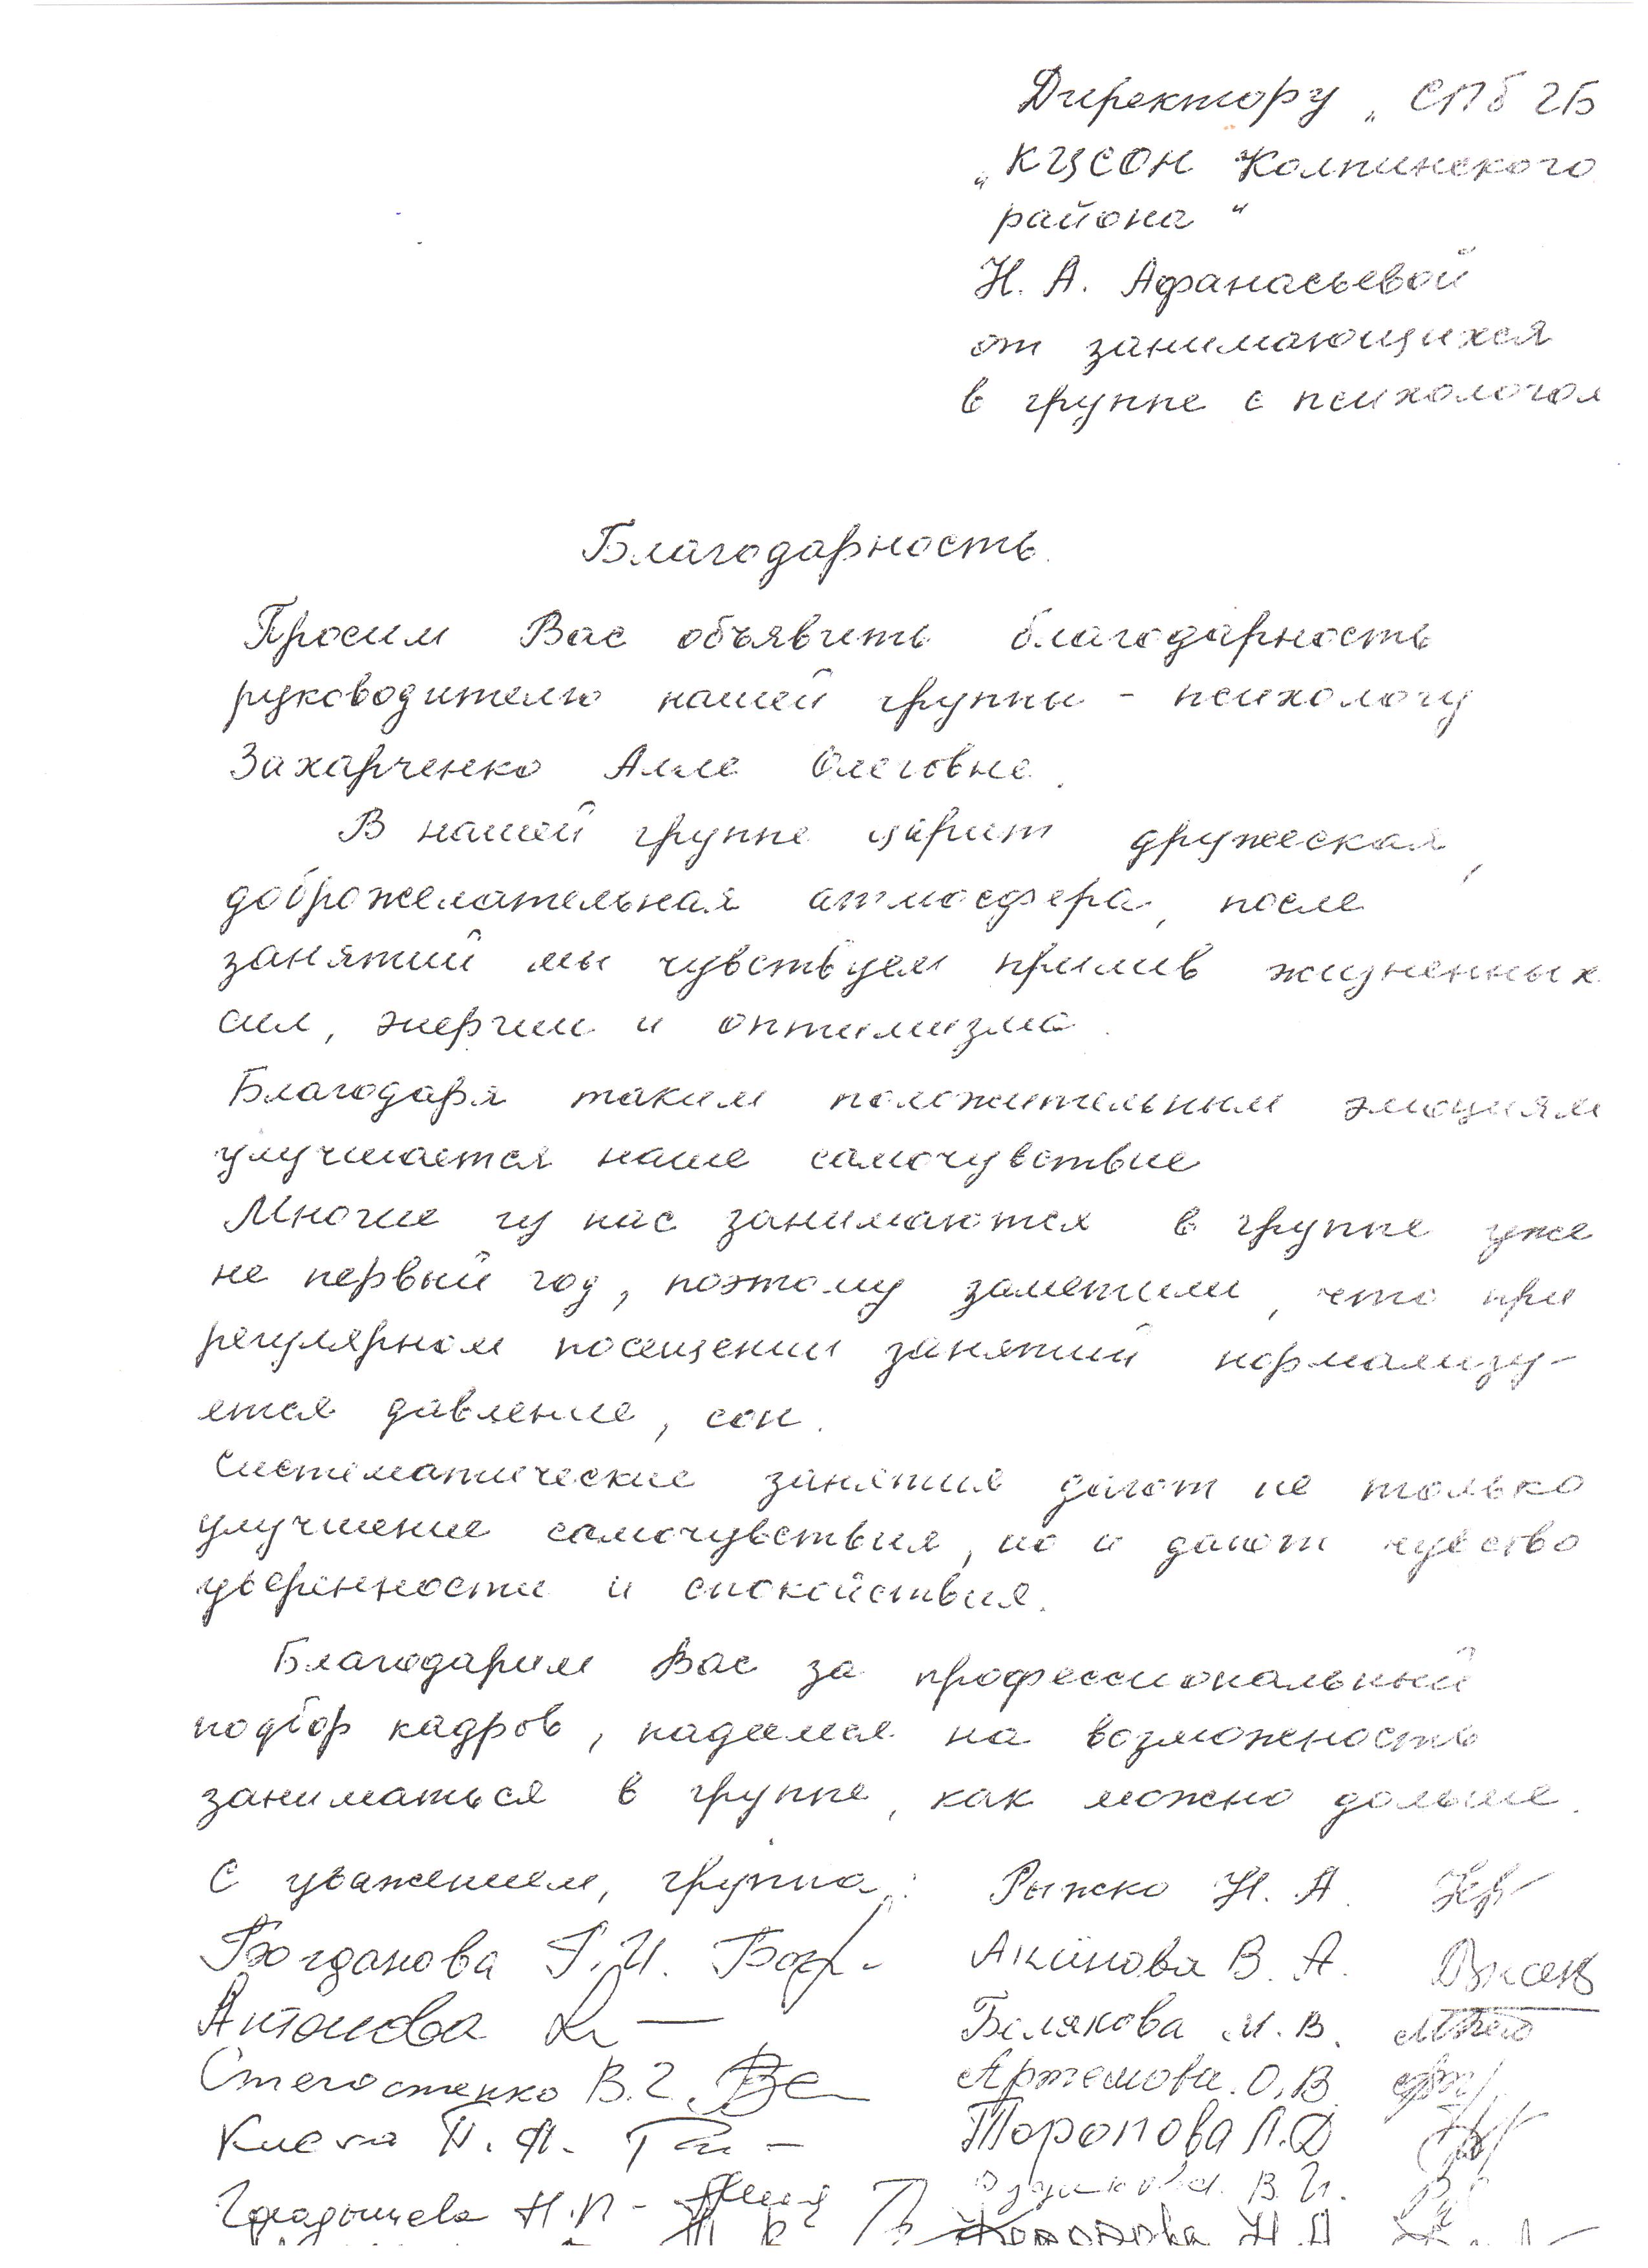 Директору „СПб ГБ
„КЦСОН Колпинского
района"
Н. А. Афанасьевой
от занимающихся
в группе с психологом
Благодарность.
Просим Вас объявить благодарность
руководителю нашей группы - психологу
Захарченко Алле Олеговне.
В нашей группе царит дружеская,
доброжелательная атмосфера, после
занятий мы чувствуем прилив жизненных
сил, энергии и оптимизма.
Благодаря таким положительным эмоциям
улучшается наше самочувствие
Многие из нас занимаются в группе уже
не первый год, поэтому заметили, что при
регулярном посещении занятий нормализу-
ется давление, сон.
Систематические занятия дают не только
улучшение самочувствия, но и дают чувство
уверенности и спокойствия.
Благодарим Вас за профессиональный
подбор кадров, надеемся на возможность
заниматься в группе, как можно дольше.
С уважением, группа: Рыжко Н. А.
Богданова Г. И. Акинова В. А.
Антонова Белякова М. В.
Стегостенко В. Г. Артемова О. В.
Торопова Л. Д
Н. П - В. И.
Н А